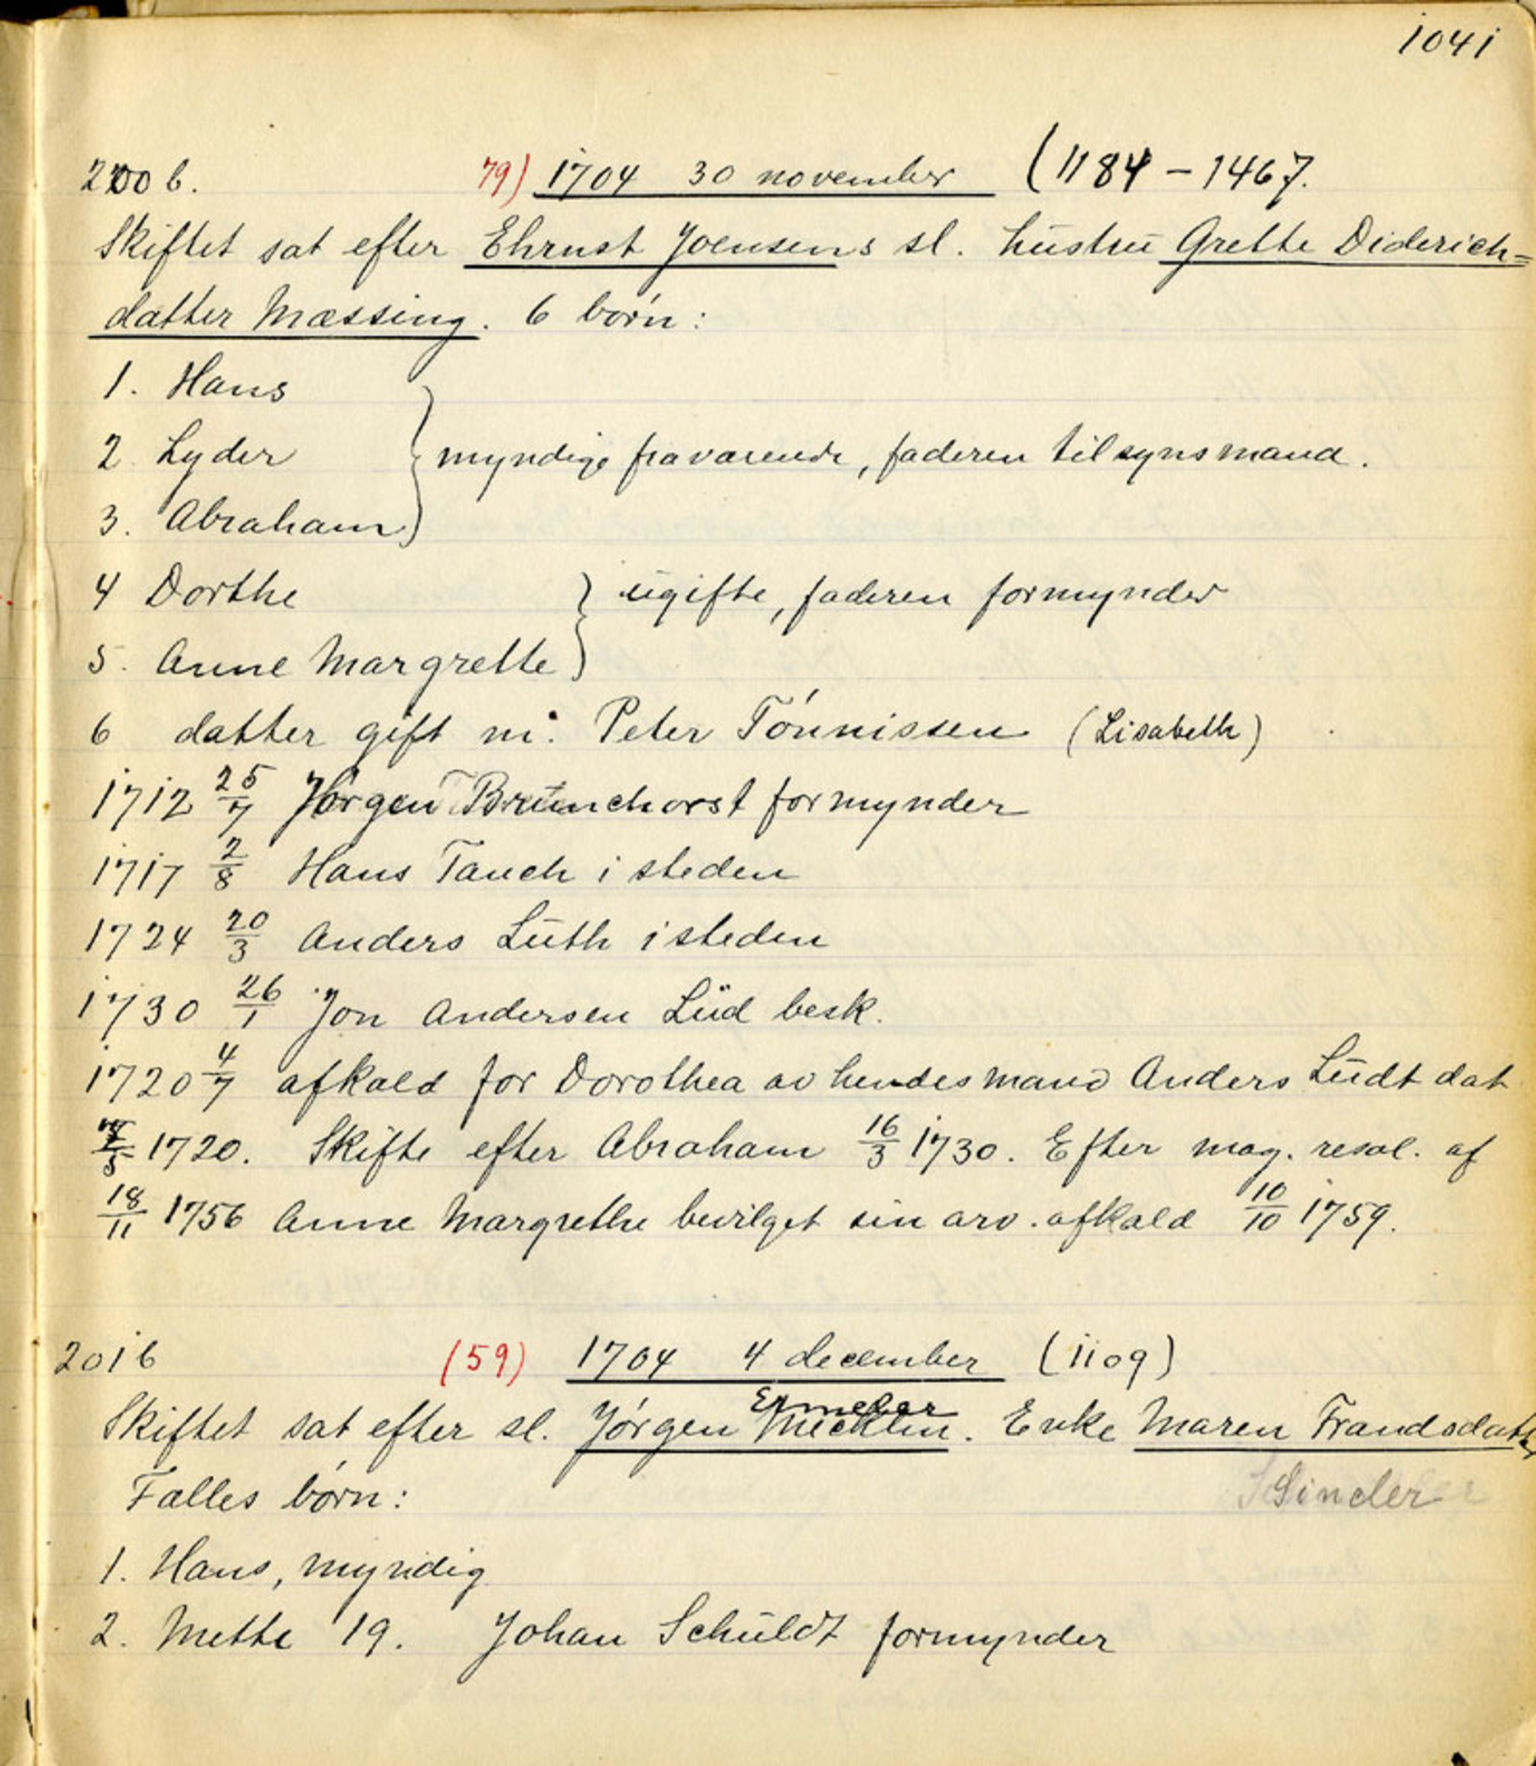 1041
200 b. 79) 1704 30 november (1184 – 1467.
Skiftet sat efter Ehrnst Joensens sl. hustru Grette Diderich=
datter Mæssing. 6 børn:
1. Hans
2 Lyder } myndige fraværende, faderen tilsynsmand.
3. Abraham
4 Dorthe } ugifte, faderen formynder
5. Anne Margrette
6 datter gift m. Peter Tønnissen (Lisabeth)
1712 25/7 Jørgen Brunchorst formynder
1717 2/8 Hans Tauch i steden
1724 20/3 Anders Lüth i steden
1730 26/1 Jon Andersen Lüd besk.
1720 4/7 afkald for Dorothea av hendes mand Anders Lüdt dat
1720. Skifte efter Abraham 16/3 1730. Efter mag. resol. af
18/11 1756 Anne Margrethe bevilget sin arv. afkald 10/10 1759.
201 b (59) 1704 4 december (1109)
Ermeber
Skiftet sat efter sl. Jørgen Mecklin. Enke Maren Frandsdatter
Fælles børn: Sincler
1. Hans, myndig
2. Mette 19. Johan Schüldt formynder